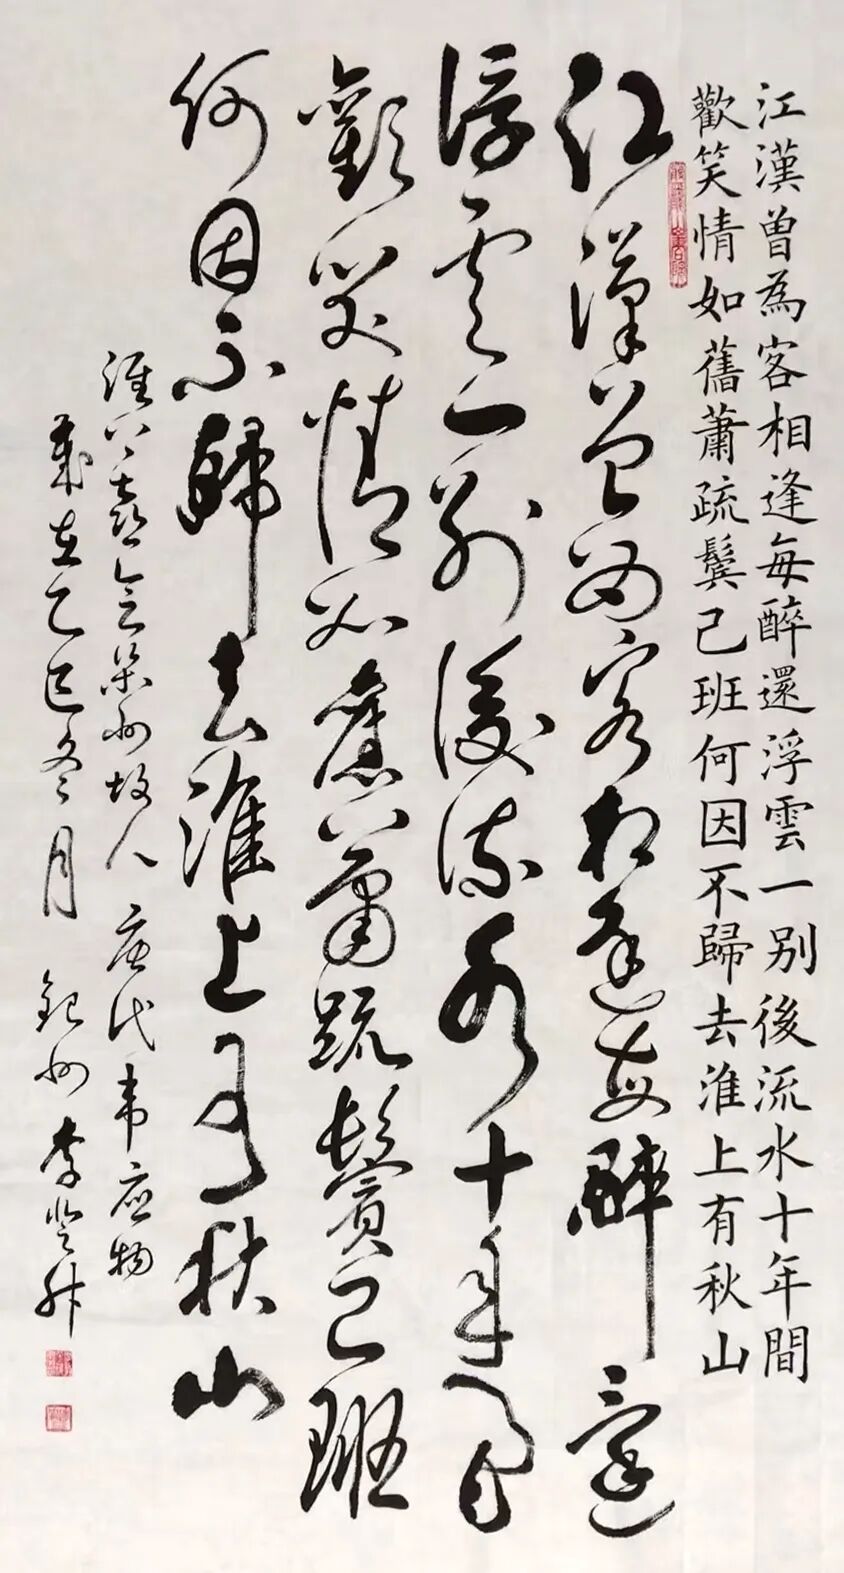 江漢曾為客相逢每醉還浮雲一别後流水十年間
歡笑情如舊蕭疏鬢己班何因不歸去淮上有秋山
江漢曾為客相逢每醉還
浮雲一别後流水十年間
歡笑情如舊蕭疏鬢已班
何因不歸去淮上有秋山
淮上喜会梁州故人 唐代韦应物
歲在乙巳冬月 州李登